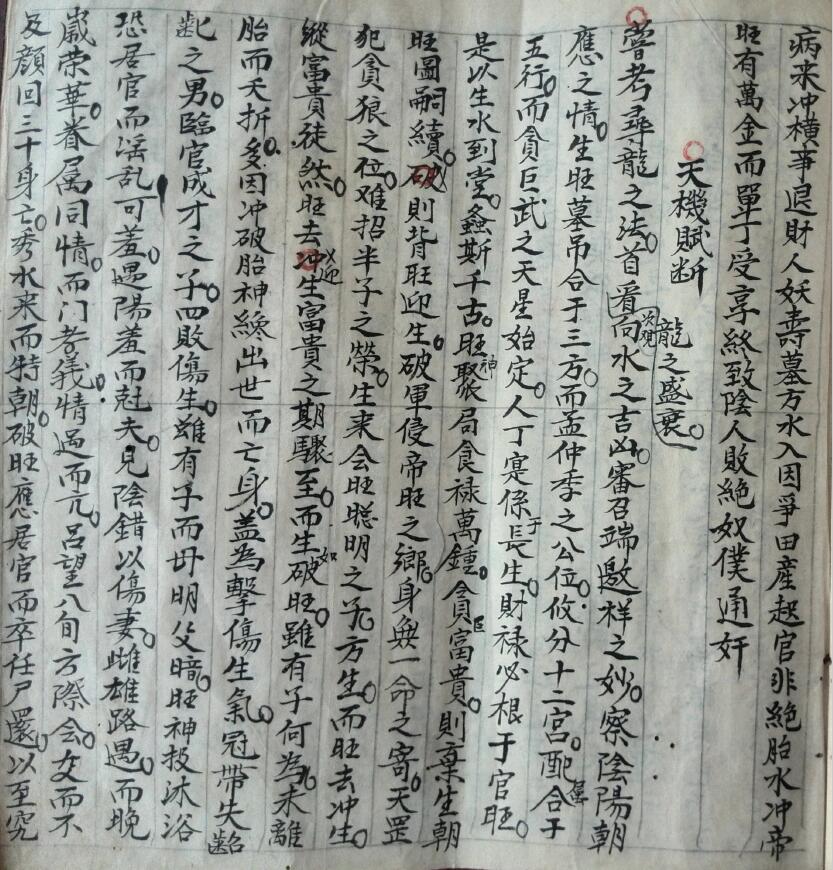 病来冲横事退財人妖壽墓方水入因爭田産起官非絕胎水冲帝
旺有萬金而單丁受享終致陰人敗絕奴僕通奸
天機賦断
嘗考尋龍之法首看龍之盛衰次观向水之吉凶審召端邀祥之妙察陰陽朝
應之情生旺墓吊合于三方而孟仲季之公位攸分十二宮配合于
五行而貪巨武之天星始定人丁寔係于長生財禄必根于官旺
是以生水到堂螽斯千古旺神聚局食禄萬鍾貪富貴則棄生朝
旺圖嗣續則背旺迎生破軍侵帝旺之鄉身無一命之寄天罡
犯貪狼之位难招半子之榮生来会旺聪明之子方生而旺去冲生
縱富貴徒然旺去迎生富貴之期驟至而生如破旺雖有子何為未離
胎而夭折多因冲破胎神纔出世而亡身盖為擊傷生氣冠帶失齠
齔之男臨官成才之子四敗傷生雖有子而母明父暗旺神投沐浴
恐居官而淫乱可羞遇陽羞而尅夫見陰錯以傷妻雌雄路遇而晚
歲荣華眷属同情而门孝義情過而亢吕望八旬方際会交而不
及顔回三十身亡秀水来而特朝破旺應居官而卒任尸還以至究